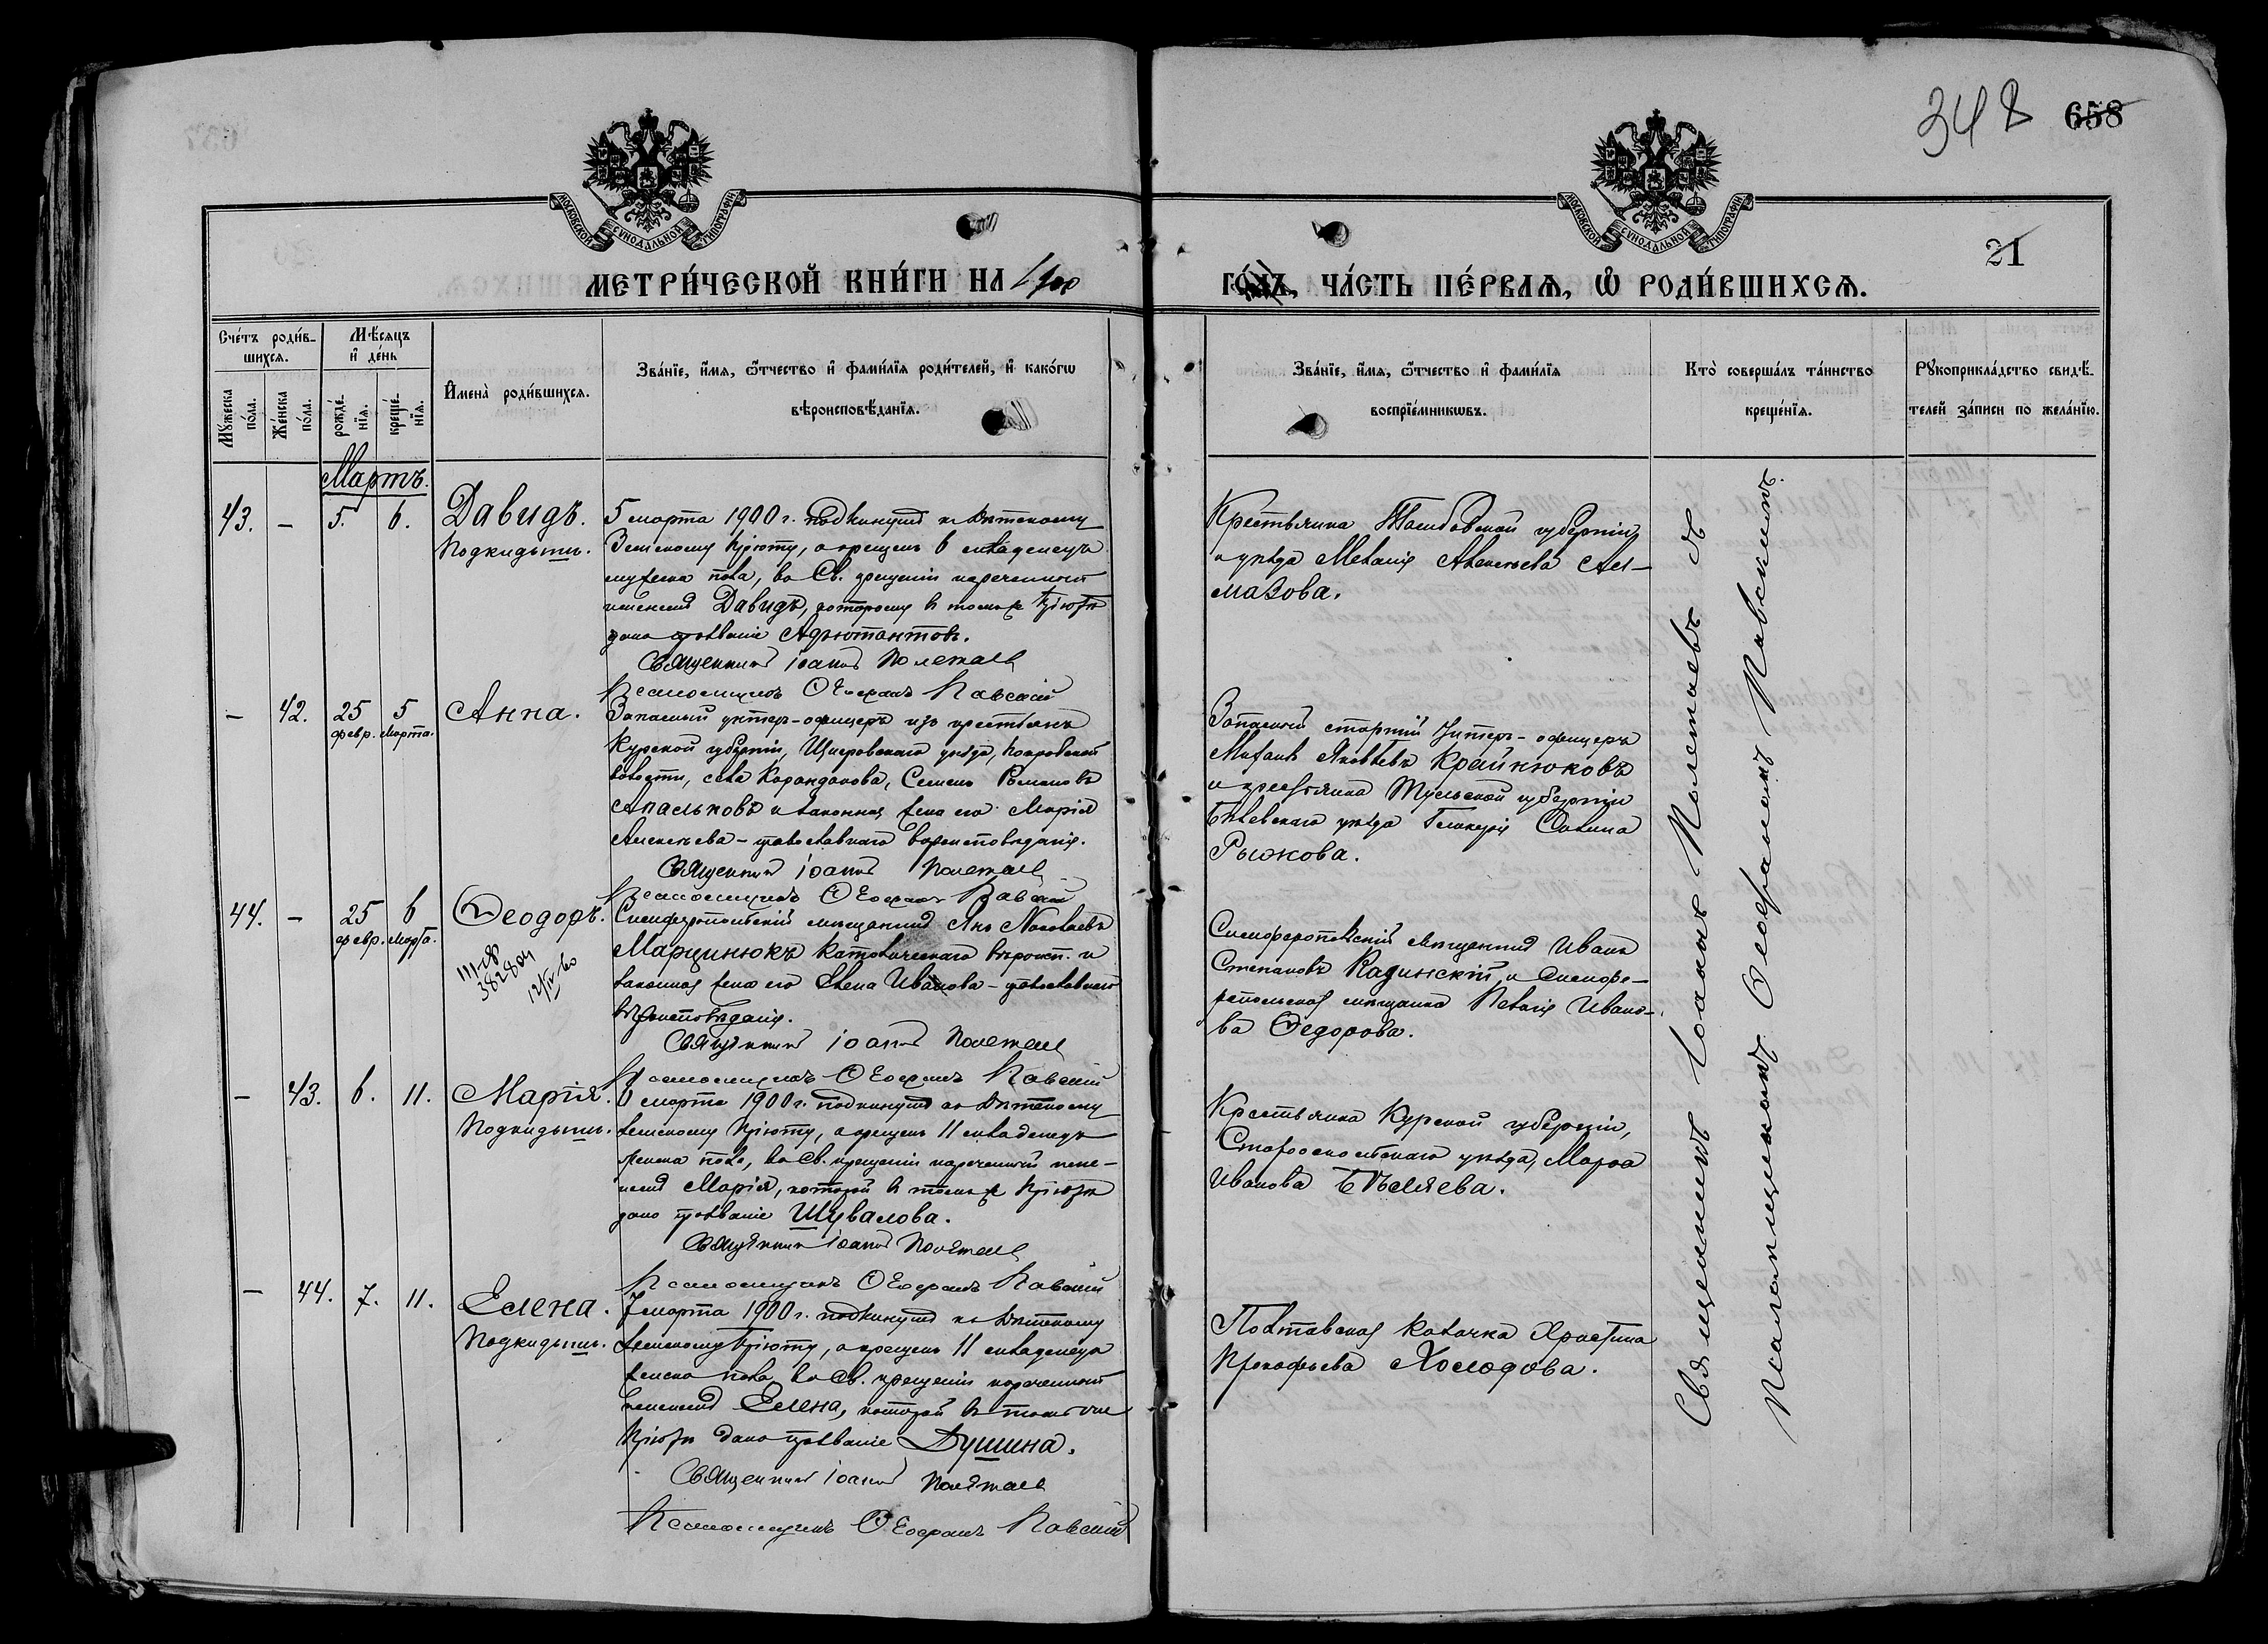 348 658
МОСКОВСКОЙ СУНОДАЛЬНОЙ ТИПОГРАФІИ
МОСКОВСКОЙ СУНОДАЛЬНОЙ ТИПОГРАФІИ
21
МЕТРИ́ЧЕСКОЙ КНИ́ГИ НА 1900
ГО́ДЪ, ЧА́СТЬ ПЕ́РВАѦ, Ѡ҆ РОДИ́ВШИХСѦ.
Сче́тъ роди́в-
шихсѧ.
Мꙋ́жеска по́ла.
Же́нска по́ла.
Мѣ́сѧцъ
и҆ де́нь
рожде́-
нїѧ.
креще́-
нїѧ.
И҆мена̀ роди́вшихсѧ.
Зва́нїе, и҆́мѧ, ѻ҆́тчество и҆ фами́лїѧ роди́телей, и҆ како́гѡ
вѣроисповѣ́данїѧ.
Зва́нїе, и҆́мѧ, ѻ҆́тчество и҆ фами́лїѧ
воспрїе́мникѡвъ.
Кто̀ соверша́лъ та́инство
креще́нїѧ.
Рꙋкоприкла́дство свидѣ́-
телей за́писи по жела́нїю.
Мартъ.
43. — 5. 6. Давидъ.
Подкидышъ.
5 марта 1900 г. подкинутъ къ Дѣтскому
Земскому Пріюту, а крещенъ 6 младенецъ
мужеска пола, во Св. крещеніи нареченный
именемъ Давидъ, которому въ томъ же Пріютѣ
дано прозваніе Адъютантовъ.
Священникъ Іоаннъ Полетаевъ
Псаломщикъ Ѳеофанъ Павскій
Крестьянка Тамбовской губерніи
и уѣзда Меланія Алексѣева Ал-
мазова.
— 42. 25 февр. 5 марта. Анна.
Запасный унтеръ-офицеръ изъ крестьянъ
Курской губерніи, Щигровскаго уѣзда, Покровской
волости, села Карандакова, Семенъ Романовъ
Апальковъ и законная жена его Марія
Алексѣева – православнаго вѣроисповѣданія.
Священникъ Іоаннъ Полетаевъ
Псаломщикъ Ѳеофанъ Павскій
Запасный старшій Унтеръ-офицеръ
Михаилъ Яковлевъ Крайнюковъ
и крестьянка Тульской губерніи
Бѣлевскаго уѣзда Гликерія Савина
Рыжкова.
44. — 25 февр. 6 марта. Ѳеодоръ.
III-ЯЮ
382804
12/IV 60
Симферопольскій мѣщанинъ Янъ Николаевъ
Марцинюкъ католическаго вѣроисп. и
законная жена его Елена Иванова – православнаго
вѣроисповѣданія.
Священникъ Іоаннъ Полетаевъ
Псаломщикъ Ѳеофанъ Павскій
Симферопольскій мѣщанинъ Иванъ
Степановъ Кадинскій, и Симфе-
ропольская мѣщанка Пелагія Ивано-
ва Ѳедорова.
— 43. 6. 11. Марія.
Подкидышъ.
6 марта 1900 г. подкинута къ Дѣтскому
Земскому Пріюту, а крещенъ 11 младенецъ
женска пола, во Св. крещеніи нареченный име-
немъ Марія, которой въ томъ же Пріютѣ
дано прозваніе Шувалова.
Священникъ Іоаннъ Полетаевъ
Псаломщикъ Ѳеофанъ Павскій
Крестьянка Курской губерніи,
Старооскольскаго уѣзда, Марѳа
Иванова Бѣляева.
— 44. 7. 11. Елена.
Подкидышъ.
7 марта 1900 г. подкинута къ Дѣтскому
Земскому Пріюту, а крещенъ 11 младенецъ
женска пола, во Св. крещеніи нареченный
именемъ Елена, которой въ томъ же
Пріютѣ дано прозваніе Душина.
Священникъ Іоаннъ Полетаевъ
Псаломщикъ Ѳеофанъ Павскій
Полтавская казачка Христина
Прокофьева Холодова.
Священникъ Іоаннъ Полетаевъ съ
Псаломщикомъ Ѳеофаномъ Павскимъ.